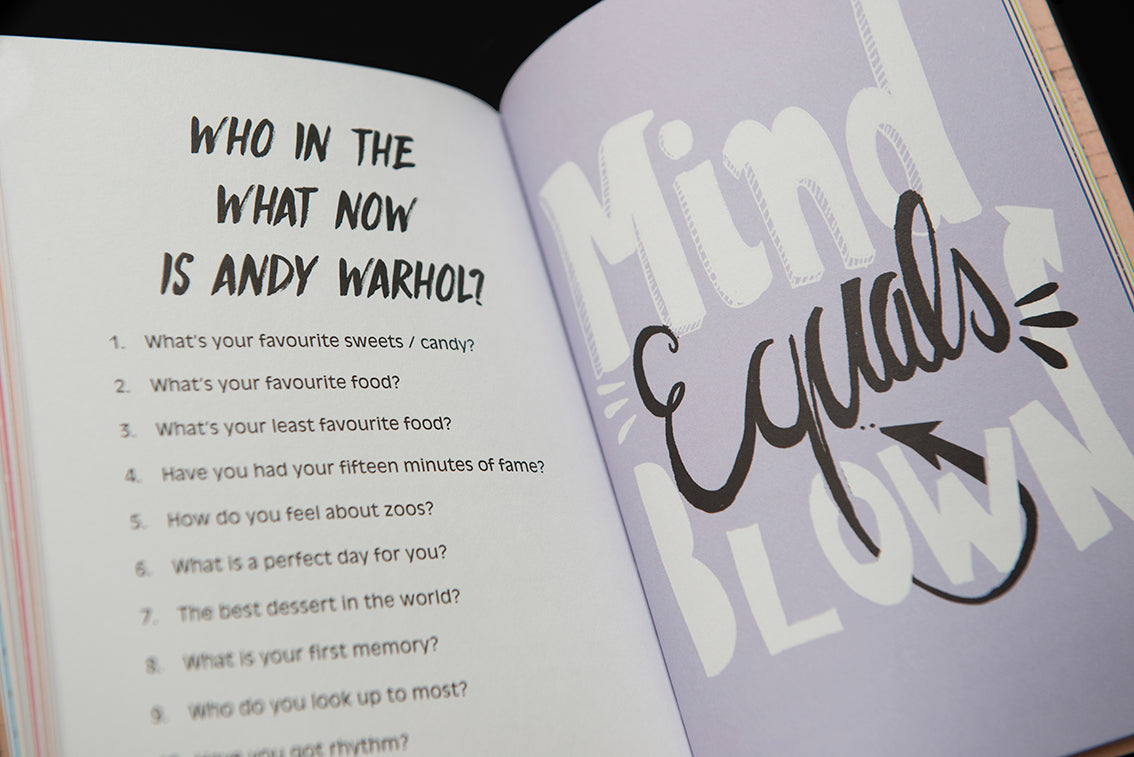 WHO IN THE
WHAT NOW
IS ANDY WARHOL?
1. What's your favourite sweets / candy?
2. What's your favourite food?
3. What's your least favourite food?
4. Have you had your fifteen minutes of fame?
5. How do you feel about zoos?
6. What is a perfect day for you?
7. The best dessert in the world?
8. What is your first memory?
9. Who do you look up to most?
10. Have you got rhythm?
Mind
Equals
BLOWN